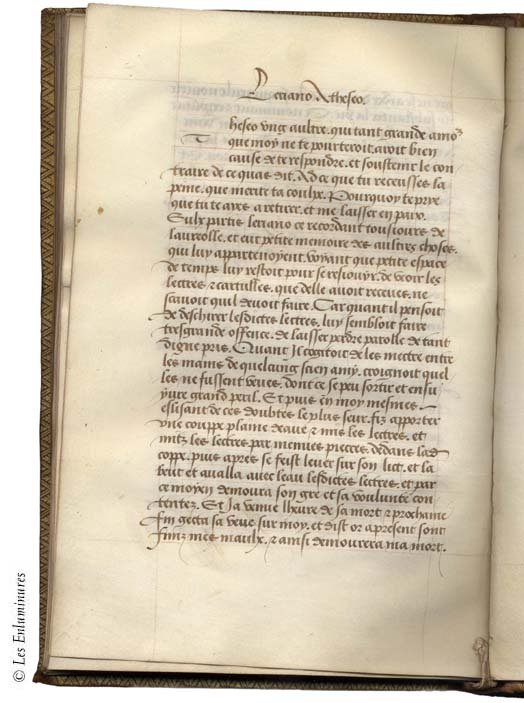 Leriano A theseo.
heseo ung aultre, qui tant grande amor
T que moy ne te porteroit, avoit bien
cause de te respondre, et soustenir le con
traire de ce qu as dit. Ad ce que tu recenses la
peine, que merite ta coulpe. Pourquoy te prye
que tu te ayes a retirer, et me laisser en paix.
leriano ce recordant tousiours de
laureolle, et eut petite memoire des aultres choses,
qui luy appartenoyent, voyant que petite espace
de temps luy restoit pour se resiouyr, de veoir les
lettres & cartulles, que delle avoit receues, ne
scavoit quil devoit faire. Car quant il pensoit
de deschirer lesdictes lettres, luy sembloit faire
tresgrande offence, de laisser perdre parolle de tant
digne pris. Quant Il cogitoit de les mettre entre
les mains de quelcung sien amy, craignoit quel
les ne fussent veues, dont ce peu sortir et ensu
yvre grand peril. Et puis en moy mesmes,
eslisant de ces doubtes le plus seur, fiz apporter
une couppe plaine deaue, & mis les lectres, et
mitz les lectres, par menues pieces, dedans lad
coppe, puis apres se feist lever sur son lict, et la
beut et avalla avec leau lesdictes lectres, et par
ce moyen demoura son gre et sa voulunte con
tentez. Et Ja venue lheure de sa mort & prochaine
fin gecta sa veue sur moy, et dist or apresent sont
finiz mes maulx, & ainsi demourera ma mort.
© Les Enluminures